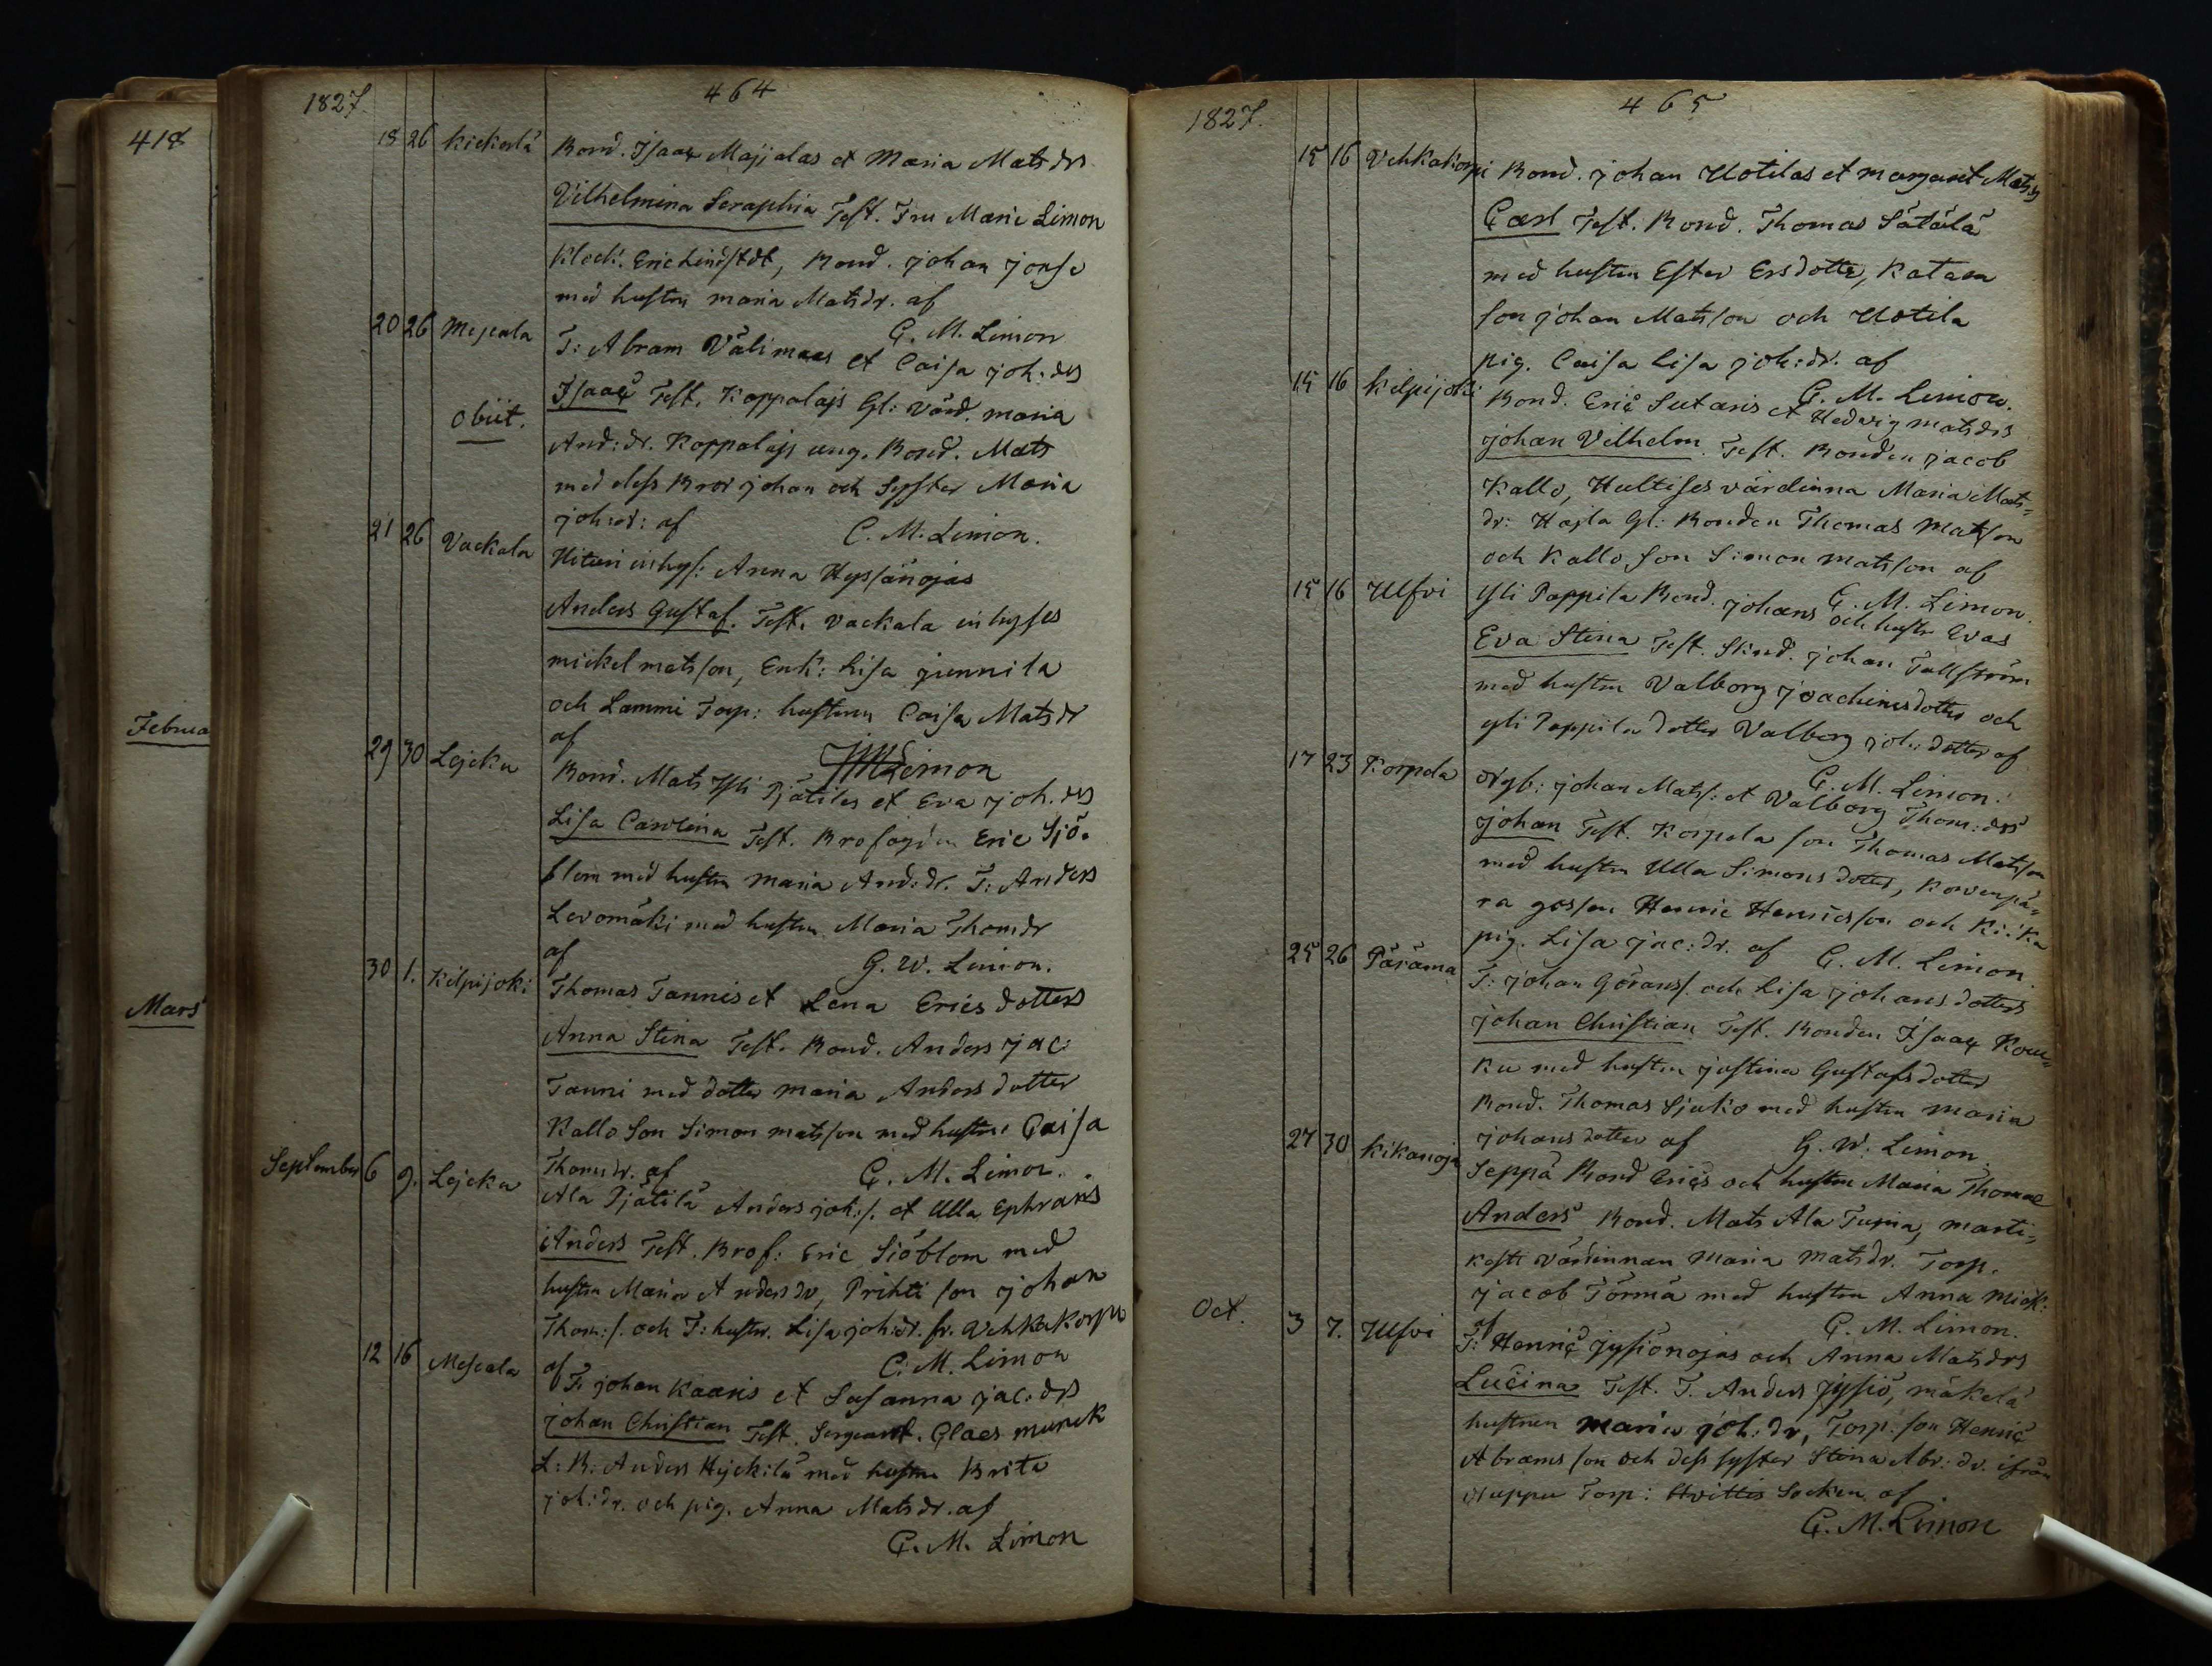 418
Februa
Mars
1827.
464
18 26 Kiekerlä Bond. Isaac Majjalas et Maria Mats drs
Vilhelmina Seraphia Test. Fru Marie Limon
Klock. Eric Lindstdt, Bond. Johan Jonse
med hustru Maria Matsdr. af
C. M. Limon
20 26 Mescala T: Abram Välimaas et Caisa Joh: drs
Obiit. Isaac Test. Koppalajs Gl: Värd. Maria
And: dr. Koppalajs ung. Bond. Mats
med dess Bror Johan och Syster Maria
Joh: dr: af C. M. Limon.
21 26 Vackala Hituri inhys: Anna Hyssänojas
Anders Gustaf. Test. Vackala inhyses
Mickel Matsson, Enk: Lisa Junnila
och Lammi Torp: hustrun Caisa Mats dr
af Limon
29 30 Lejcku Bond. Mats Yli Pjätiles et Eva Joh. drs
Lisa Carolina Test. Brofogden Eric Sjö-
blom med hustru Maria And: dr. T: Anders
Levomäki med hustru Maria Thomdr
af G. W. Limon.
30 1. Kilpijoki Thomas Tannis et Lena Erics dotters
Anna Stina Test. Bond. Anders Jac:
Tanni med dotter Maria Anders dotter
Kallo Son Simon Matsson med hustru Caisa
Thomdr. af C. M. Limon.
September 6 9. Lejcku Ala Pjätilä Anders Joh: s. et Ulla Ephraïs
Anders Test. Brof: Eric Sjöblom med
hustru Maria Andersdr, Prihti son Johan
Thom: s. och T: hustr. Lisa Joh: dr. fr. Vehkakorpi
af C. M. Limon
12 16 Mescala T: Johan Kaaris et Susanna Jac: drs
Johan Christian Test. Sergeant. Claes Munck
L: B: Anders Hyckilä med hustru Brita
Joh: dr. och pig. Anna Mats dr. af
C. M. Limon
1827.
465
15 16 Vehkakorpi Bond. Johan Uotilas et Margaret Mats
Carl Test. Bond. Thomas Sätälä
med hustru Ester Ersdotter, Katara
son Johan Matsson och Uotila
pig. Caisa Lisa Joh: dr. af
C. M. Limon.
15 16 Kilpijoki Bond. Eric Sutaris et Hedwig Mats drs
Johan Vilhelm. Test. Bonden Jacob
Kallo, Hultises värdinna Maria Mats-
dr: Hajla Gl: Bonden Thomas Matsson
och Kallo son Simon Matsson af
C. M. Limon.
15 16 Ulfvi Yli Pappila Bond. Johans och hustr Evas
Eva Stina Test. Skind. Johan Tallström
med hustru Valborg Joachimsdotter och
Yli Pappila dotter Valborg Joh: dotter af
C. M. Limon.
17 23 Korpela Nyb: Johan Mats: et Valborg Thom: drs
Johan Test. Korpela son Thomas Matsson
med hustru Ulla Simons dotter, Korvenpä-
ra gossen Henric Henricsson och Kiika
pig. Lisa Jac: dr. af C. M. Limon.
25 26 Pärämä T: Johan Görans: och Lisa Johans dotters
Johan Christian Test. Bonden Isaac Kou-
ku med hustru Justina Gustafsdotter
Bond. Thomas Sjuko med hustru Maria
Johans dotter af G. W. Limon
27 30 Kikanoja Seppä Bond Erics och hustru Maria Thomae
Anders Bond. Mats Ala Tupia, Marti-
kesti värdinnan Maria Matsdr. Torp.
Jacob Törmä med hustru Anna Mick:
af C. M. Limon.
Oct. 3 7. Ulfvi T: Henric Jysionojas och Anna Mats drs
Lucina Test. T. Anders Jysiö, Mäkelä
hustrun Maria Joh: dr, Torp. son Henric
Abrams son och dess syster Stina Abr: dr. ifrån
Nuppu Torp: Hvittis Socken af
C. M. Limon